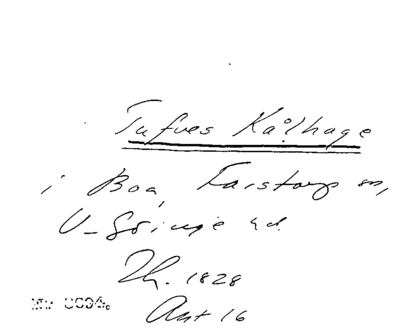 Tufves Kålhage
i Boa, Farstorp sn,
V-Göinge hd.
Th. 1828
Akt 16